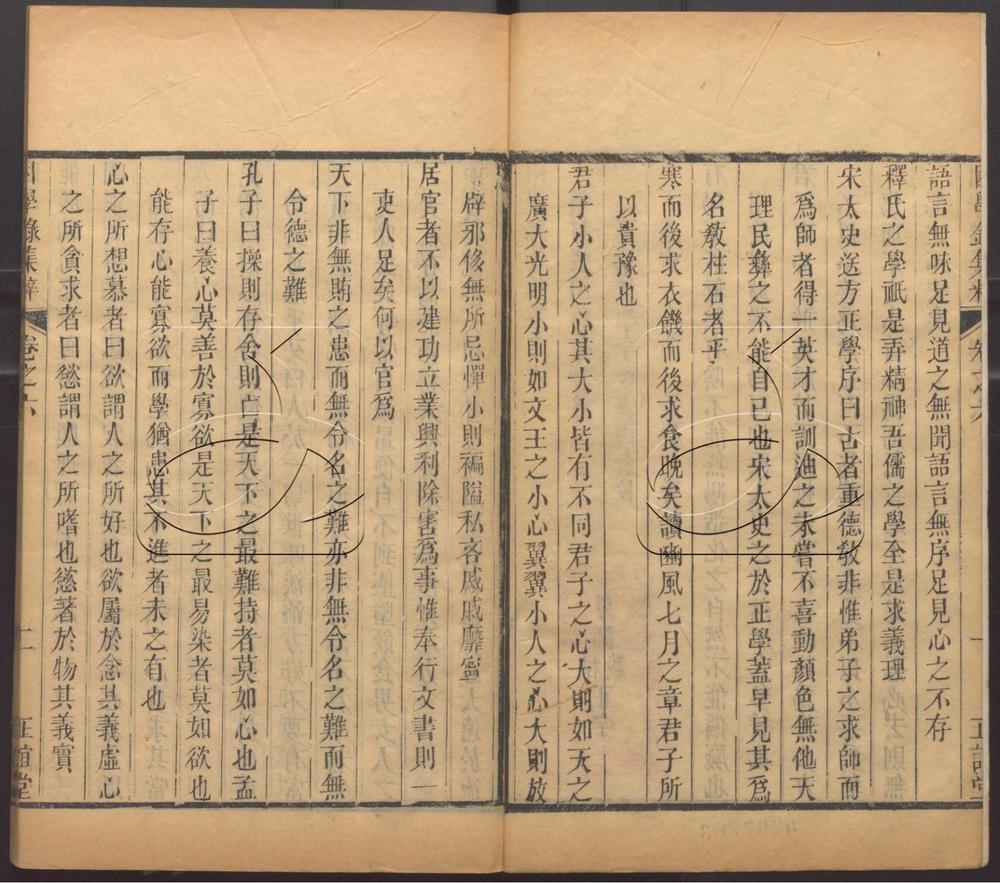 語言無味足見道之無聞語言無序足見心之不存
釋氏之學祇是弄精神吾儒之學至是求義理
宋太史送方正學序曰古者重德敎非惟弟子之求師而
為師者得一英才而訓迪之未嘗不喜動顏色無他天
理民彝之不能自已也宋太史之於正學蓋早見其爲
名敎柱石者乎
寒而後求衣饑而後求食晚矣讀豳風七月之章君子所
以貴豫也
君子小人之心其大小皆有不同君子之心大則如天之
廣大光明小則如文王之小心翼翼小人之心大則放
辟邪侈無所忌憚小則褊隘私吝戚戚靡寧
居官者不以建功立業興利除害爲事惟奉行文書則一
吏人足矣何以官爲
天下非無賄之患而無令名之難亦非無令名之難而無
令德之難
孔子曰操則存舍則亡是天下之最難持者莫如心也孟
子曰養心莫善於寡欲是天下之最易染者莫如欲也
能存心能寡欲而學猶患其不進者未之有也
心之所想慕者曰欲謂人之所好也欲屬於念其義虛心
之所貪求者曰慾謂人之所嗜也慾著於物其義實
卷之六
二
正誼堂